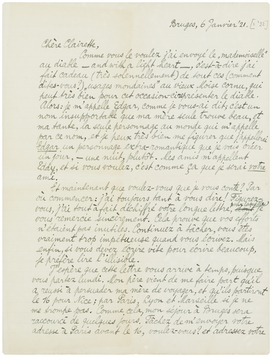 Bruges, 6 Janvier '21.
Chère Clairette,
Comme vous le voulez j'ai envoyé le „mademoiselle"
au diable — and with a light heart —, c'est-à-dire j'ai
fait cadeau (très solennellement) de tout ces (comment
dites-vous), usages mondains" au vieux Loise cornu, qui
peut très bien pour cet occasion représenter le diable
Alors je m'appelle Edgar, comme je vous ai dit; c'est un
nom insupportable que ma mère seule trouve beau, et
ma tante, la seule personnage au monde qui m'appelle
par ce nom, et je peux très bien me figurer que
Edgar, un personnage extra-romantique que je vais créer
un jour, — une nuit, plutôt. Mes amis m'appellent
Eddy, et si vous voulez, c'est comme ça que je serai votre
ami.
Et maintenant que voulez-vous que je vous conte? Par
où commencer; j'ai toujours tant à vous dire! Figurez-
vous, j'ai tout à fait déchiffré votre longue lettre,
vous remercie sincèrement. Cela prouve que vos efforts
n'étaient pas inutiles. Continuez à tâcher, vous êtes
vraiment trop impétueuse quand vous écrivez. Mais
enfin, si vous devez écrire vite pour écrire beaucoup,
je préfère lire l'illisible.
J'espère que cette lettre vous arrive à temps, puisque
vous partez lundi. Mon père vient de me dire
a réussi à persuader ma mère de voyager, et qu'ils partiront
le 10 pour Nice; par Paris, Lyon et Marseille si je ne
me trompe pas. Comme cela, mon séjour à Bruges sera
raccourci de quelques jours. Tâchez de m'envoyer votre
adresse à Paris avant le 10, voulez-vous? et adressez votre